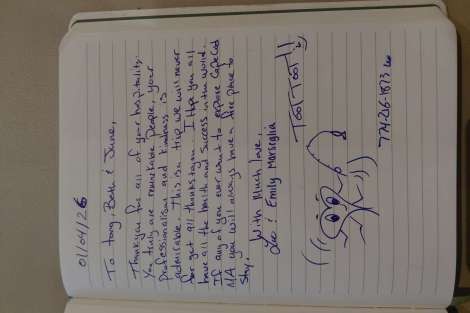 01/04/26
To tong, Bank & June,
Thankyou for all of your hospitality.
You truly are remarkable people, your
professionalism and kindness is
admirable. This is a trip we will never
forget all thanks to you. I Hope you all
have all the health and success in the world.
If any of you ever want to explore Cape Cod
MA you will always have a free place to
stay.
With Much love,
& Emily Marseglia
TOOT TOOT!!